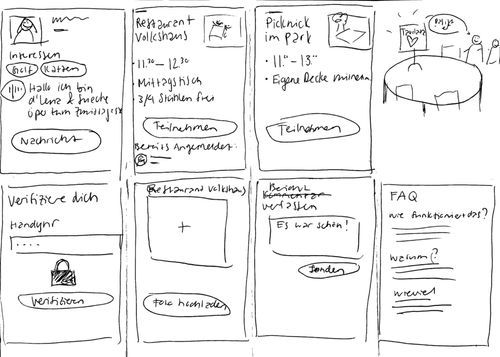 Interessen
Golf Katzen
Hallo ich bin
Nachricht
Restaurant
Volkshaus
• 11.30 – 12.30
• Mittagstisch
• 3/9 Stühlen frei
Teilnehmen
Bereits Angemeldet:
Picknick
im Park
• Eigene Decke
Teilnehmen
Verifiziere dich
Handynr
....
Verifizieren
Restaurant Volkshaus
+
Foto hochladen
Bericht
verfassen
Es war schön!
Senden
FAQ
Wie funktioniert das?
Warum?
Wieviel